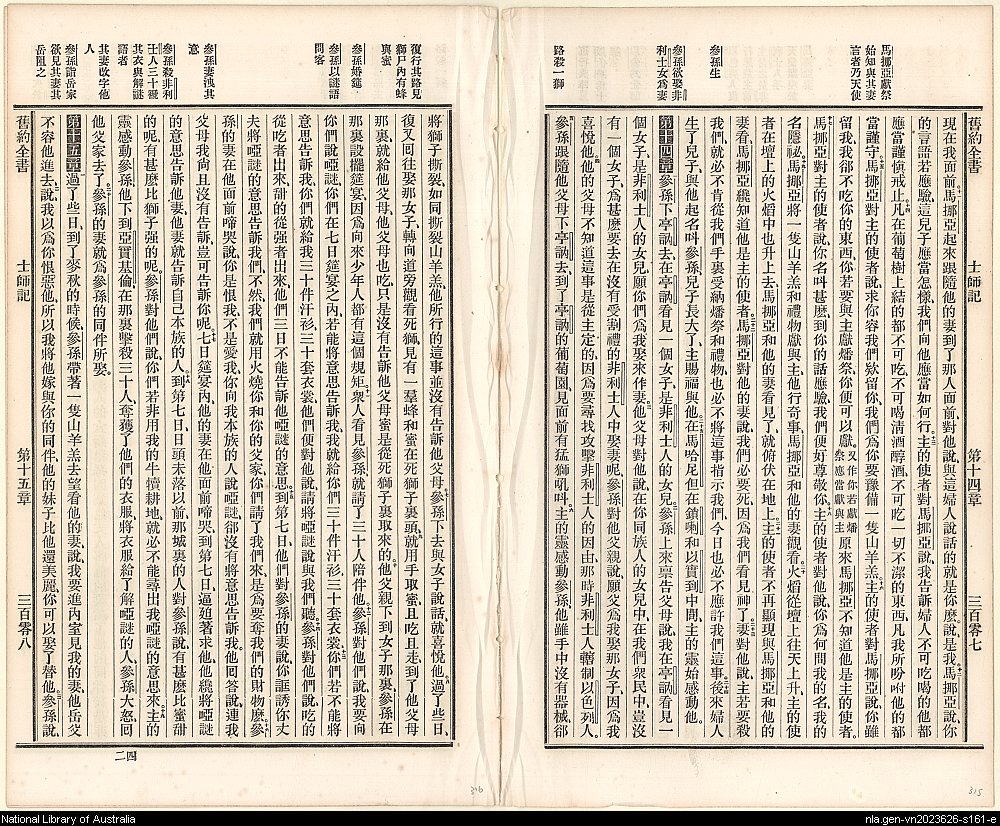 馬挪亞獻祭
始知與其妻
言者乃天使
參孫生
參孫欲娶非
利士女爲妻
路殺一獅
舊約全書 士師記 第十四章 三百零七
現在我面前馬挪亞起來跟隨他的妻到了那人面前對他說與這婦人說話的就是你麼說是我馬挪亞說你
的言語若應驗這兒子應當怎樣我們向他應當如何行主的使者對馬挪亞說我告訴婦人不可吃喝的他都
應當謹愼戒止凡在葡萄樹上結的都不可吃不可喝清酒醇酒不可吃一切不潔的東西凡我所吩咐他的都
當謹守馬挪亞對主的使者說求你容我們欵留你我們爲你要豫備一隻山羊羔主的使者對馬挪亞說你雖
留我我卻不吃你的東西你若要與主獻燔祭你便可以獻又作你若獻燔祭應當獻與主原來馬挪亞不知道他是主的使者
馬挪亞對主的使者說你名叫甚麽到你的話應驗我們便好尊敬你主的使者對他說你爲何問我的名我的
名隱祕馬挪亞將一隻山羊羔和禮物獻與主他行奇事馬挪亞和他的妻觀看火熖從壇上往天上升主的使
者在壇上的火熖中也升上去馬挪亞和他的妻看見了就俯伏在地上主的使者不再顯現與馬挪亞和他的
妻看馬挪亞纔知道他是主的使者馬挪亞對他的妻說我們必要死因爲我們看見神了妻對他說主若要殺
我們就必不肯從我們手裏受納燔祭和禮物也必不將這事指示我們今日也必不應許我們這事後來婦人
生了兒子與他起名叫參孫兒子長大了主賜福與他在馬哈尼但在鎖喇和以實到中間主的靈始感動他
第十四章參孫下亭訥去在亭訥看見一個女子是非利士人的女兒參孫上來禀告父母說我在亭訥看見一
個女子是非利士人的女兒願你們爲我娶來作妻他父母對他說在你同族人的女兒中在我們衆民中豈沒
有一個女子你爲甚麽要去在沒有受割禮的非利士人中娶妻呢參孫對他父親說願父爲我娶那女子因爲我
喜悅他他的父母不知道這事是從主定的因爲要尋找攻擊非利士人的因由那時非利士人轄制以色列人
參孫跟隨他父母下亭訥去到了亭訥的葡萄園見面前有猛獅吼呌主的靈感動參孫他雖手中沒有器械卻
復行其路見
獅尸內有蜂
與蜜
參孫婚筵
參孫以謎語
問客
參孫妻洩其
意
參孫殺非利
士人三十襯
其衣與解謎
語者
其妻改字他
人
參孫詣岳家
欲見其妻其
岳阻之
將獅子撕裂如同撕裂山羊羔他所行的這事並沒有告訴他父母參孫下去與女子說話就喜悅他過了些日
復又囘往娶那女子轉向道旁觀看死獅見有一羣蜂和蜜在死獅子裏頭就用手取蜜且吃且走到了他父母
那裏就給他父母他父母也吃只是沒有告訴他父母蜜是從死獅子裏取來的他父親下到女子那裏參孫在
那裏設擺筵宴因爲向來少年人都有這個規矩衆人看見參孫就請了三十人陪伴他參孫對他們說我要向
你們說啞謎你們在七日筵宴之內若能將意思告訴我我就給你們三十件汗衫三十套衣裳你們若不能將
意思告訴我你們就給我三十件汗衫三十套衣裳他們便對他說請將啞謎說與我們聽參孫對他們說吃的
從吃者出來甜的從强者出來他們三日不能告訴他啞謎的意思到第七日他們對參孫的妻說你誆誘你丈
夫將啞謎的意思告訴我們不然我們就用火燒你和你的父家你們請了我們來是爲要奪我們的財物麽參
孫的妻在他面前啼哭說你是恨我不是愛我你向我本族的人說啞謎卻沒有將意思告訴我他囘答說連我
父母我尙且沒有告訴豈可告訴你呢七日筵宴內他的妻在他面前啼哭到第七日逼迫著求他他纔將啞謎
的意思告訴他妻他妻就告訴自己本族的人到第七日日頭未落以前那城裏的人對參孫說有甚麽比蜜甜
的呢有甚麽比獅子强的呢參孫對他們說你們若非用我的牛犢耕地就必不能尋出我啞謎的意思來主的
靈感動參孫他下到亞實基倫在那裏擊殺三十人奪獲了他們的衣服將衣服給了解啞謎的人參孫大怒囘
他父家去了參孫的妻就爲參孫的同伴所娶
第十五章過了些日到了麥秋的時候參孫帶著一隻山羊羔去望看他的妻說我要進內室見我的妻他岳父
不容他進去說我以爲你恨惡他所以我將他嫁與你的同伴他的妹子比他還美麗你可以娶了替他參孫說
舊約全書 士師記 第十五章 三百零八
四二
316
315
National Library of Australia
nla.gen-vn2023626-s161-e